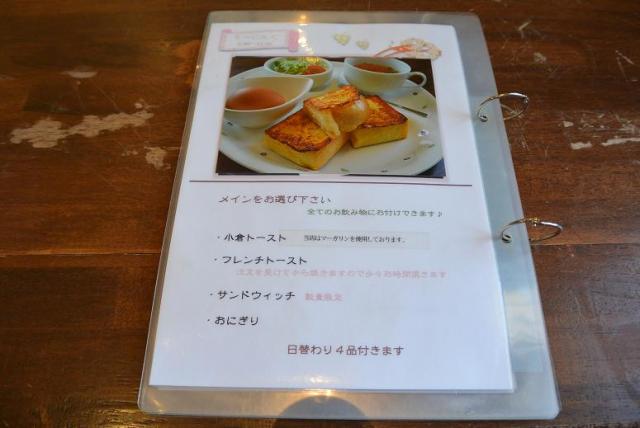 メインをお選び下さい
全てのお飲み物にお付けできます♪
・小倉トースト 当店はマーガリンを使用しております。
・フレンチトースト
注文を受けてから焼きますので少々お時間頂きます
・サンドウィッチ 数量限定
・おにぎり
日替わり4品付きます